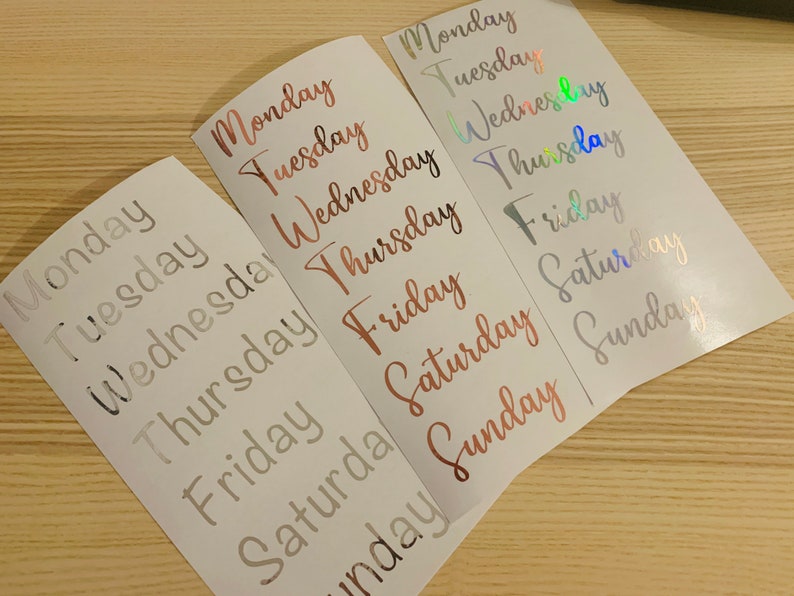 Monday
Tuesday
Wednesday
Thursday
Friday
Saturda
unday
Monday
Tuesday
Wednesday
Thursday
Friday
Saturday
Sunday
Monday
Tuesday
Wednesday
Thursday
Friday
Saturday
Sunday